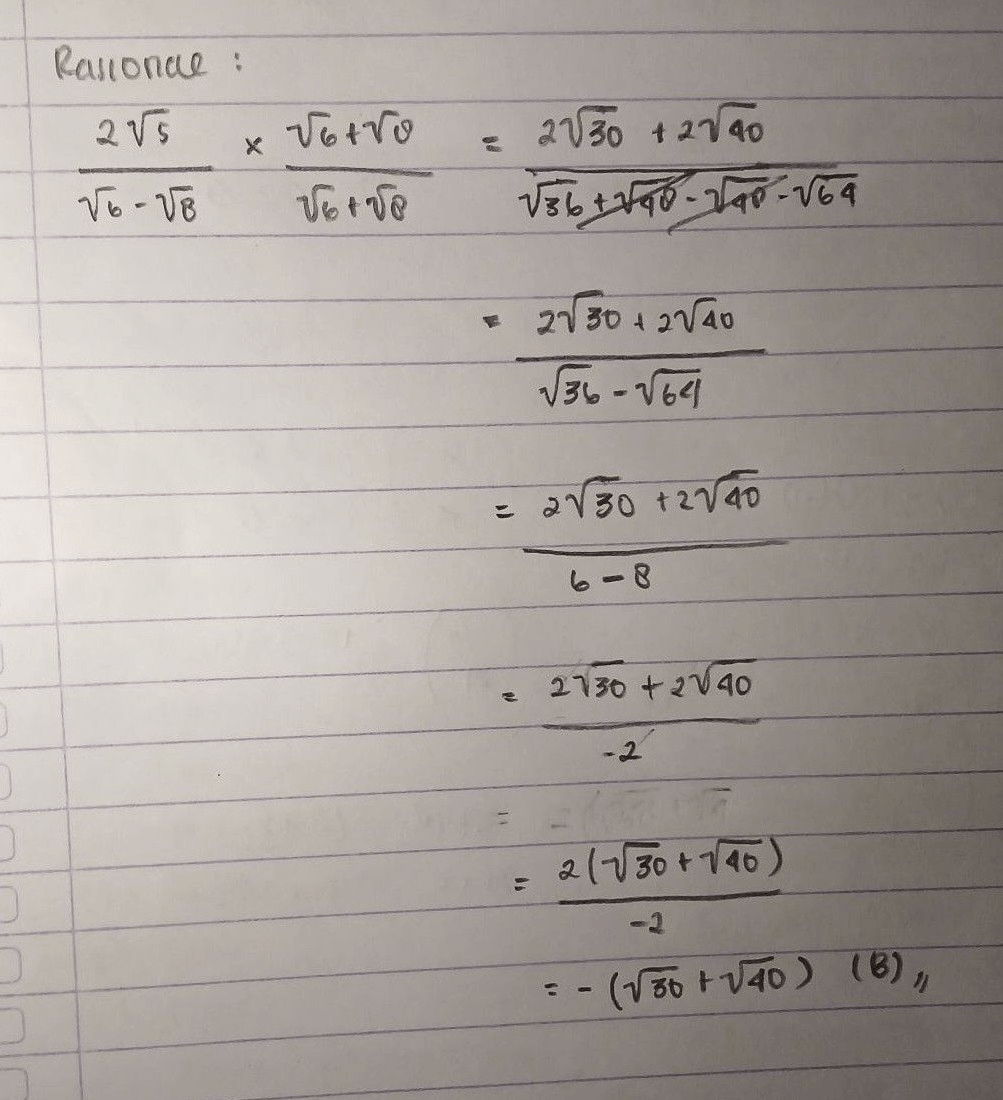 Rasional :
2√5 / √6 - √8 × √6 + √8 / √6 + √8 = 2√30 + 2√40 / √36 + √48 - √48 - √64
= 2√30 + 2√40 / √36 - √64
= 2√30 + 2√40 / 6 - 8
= 2√30 + 2√40 / -2
=
= 2(√30 + √40) / -2
= - (√30 + √40) (B) //